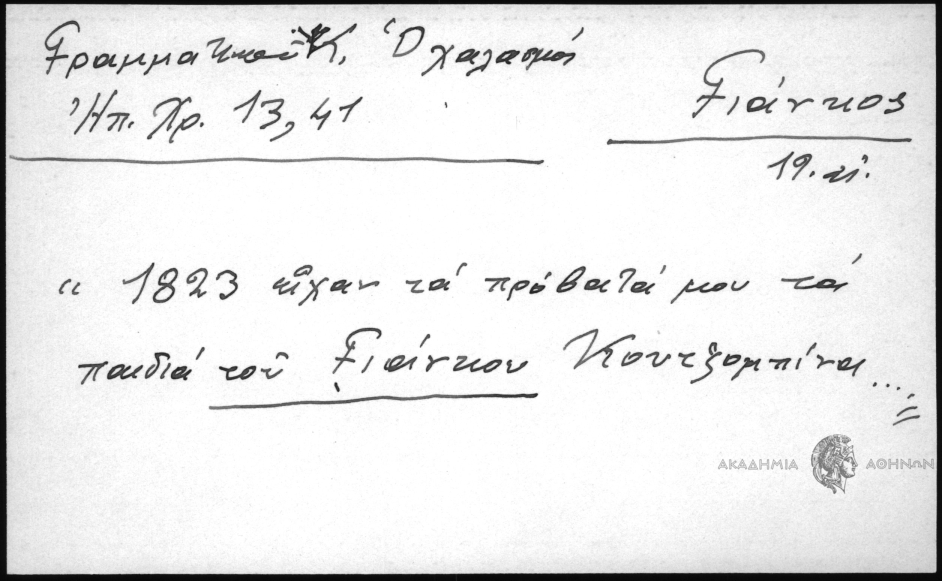 Γραμματικοῦ Κ. Ὁ χαλασμός
Ἠπ. Χρ. 13, 41
Γιάνκος
19. αἰ.
“ 1823 εἶχαν τά πρόβατά μου τά
παιδιά τοῦ Γιάνκου Κουτζομπίνα...."
ΑΚΑΔΗΜΙΑ ΑΘΗΝΩΝ